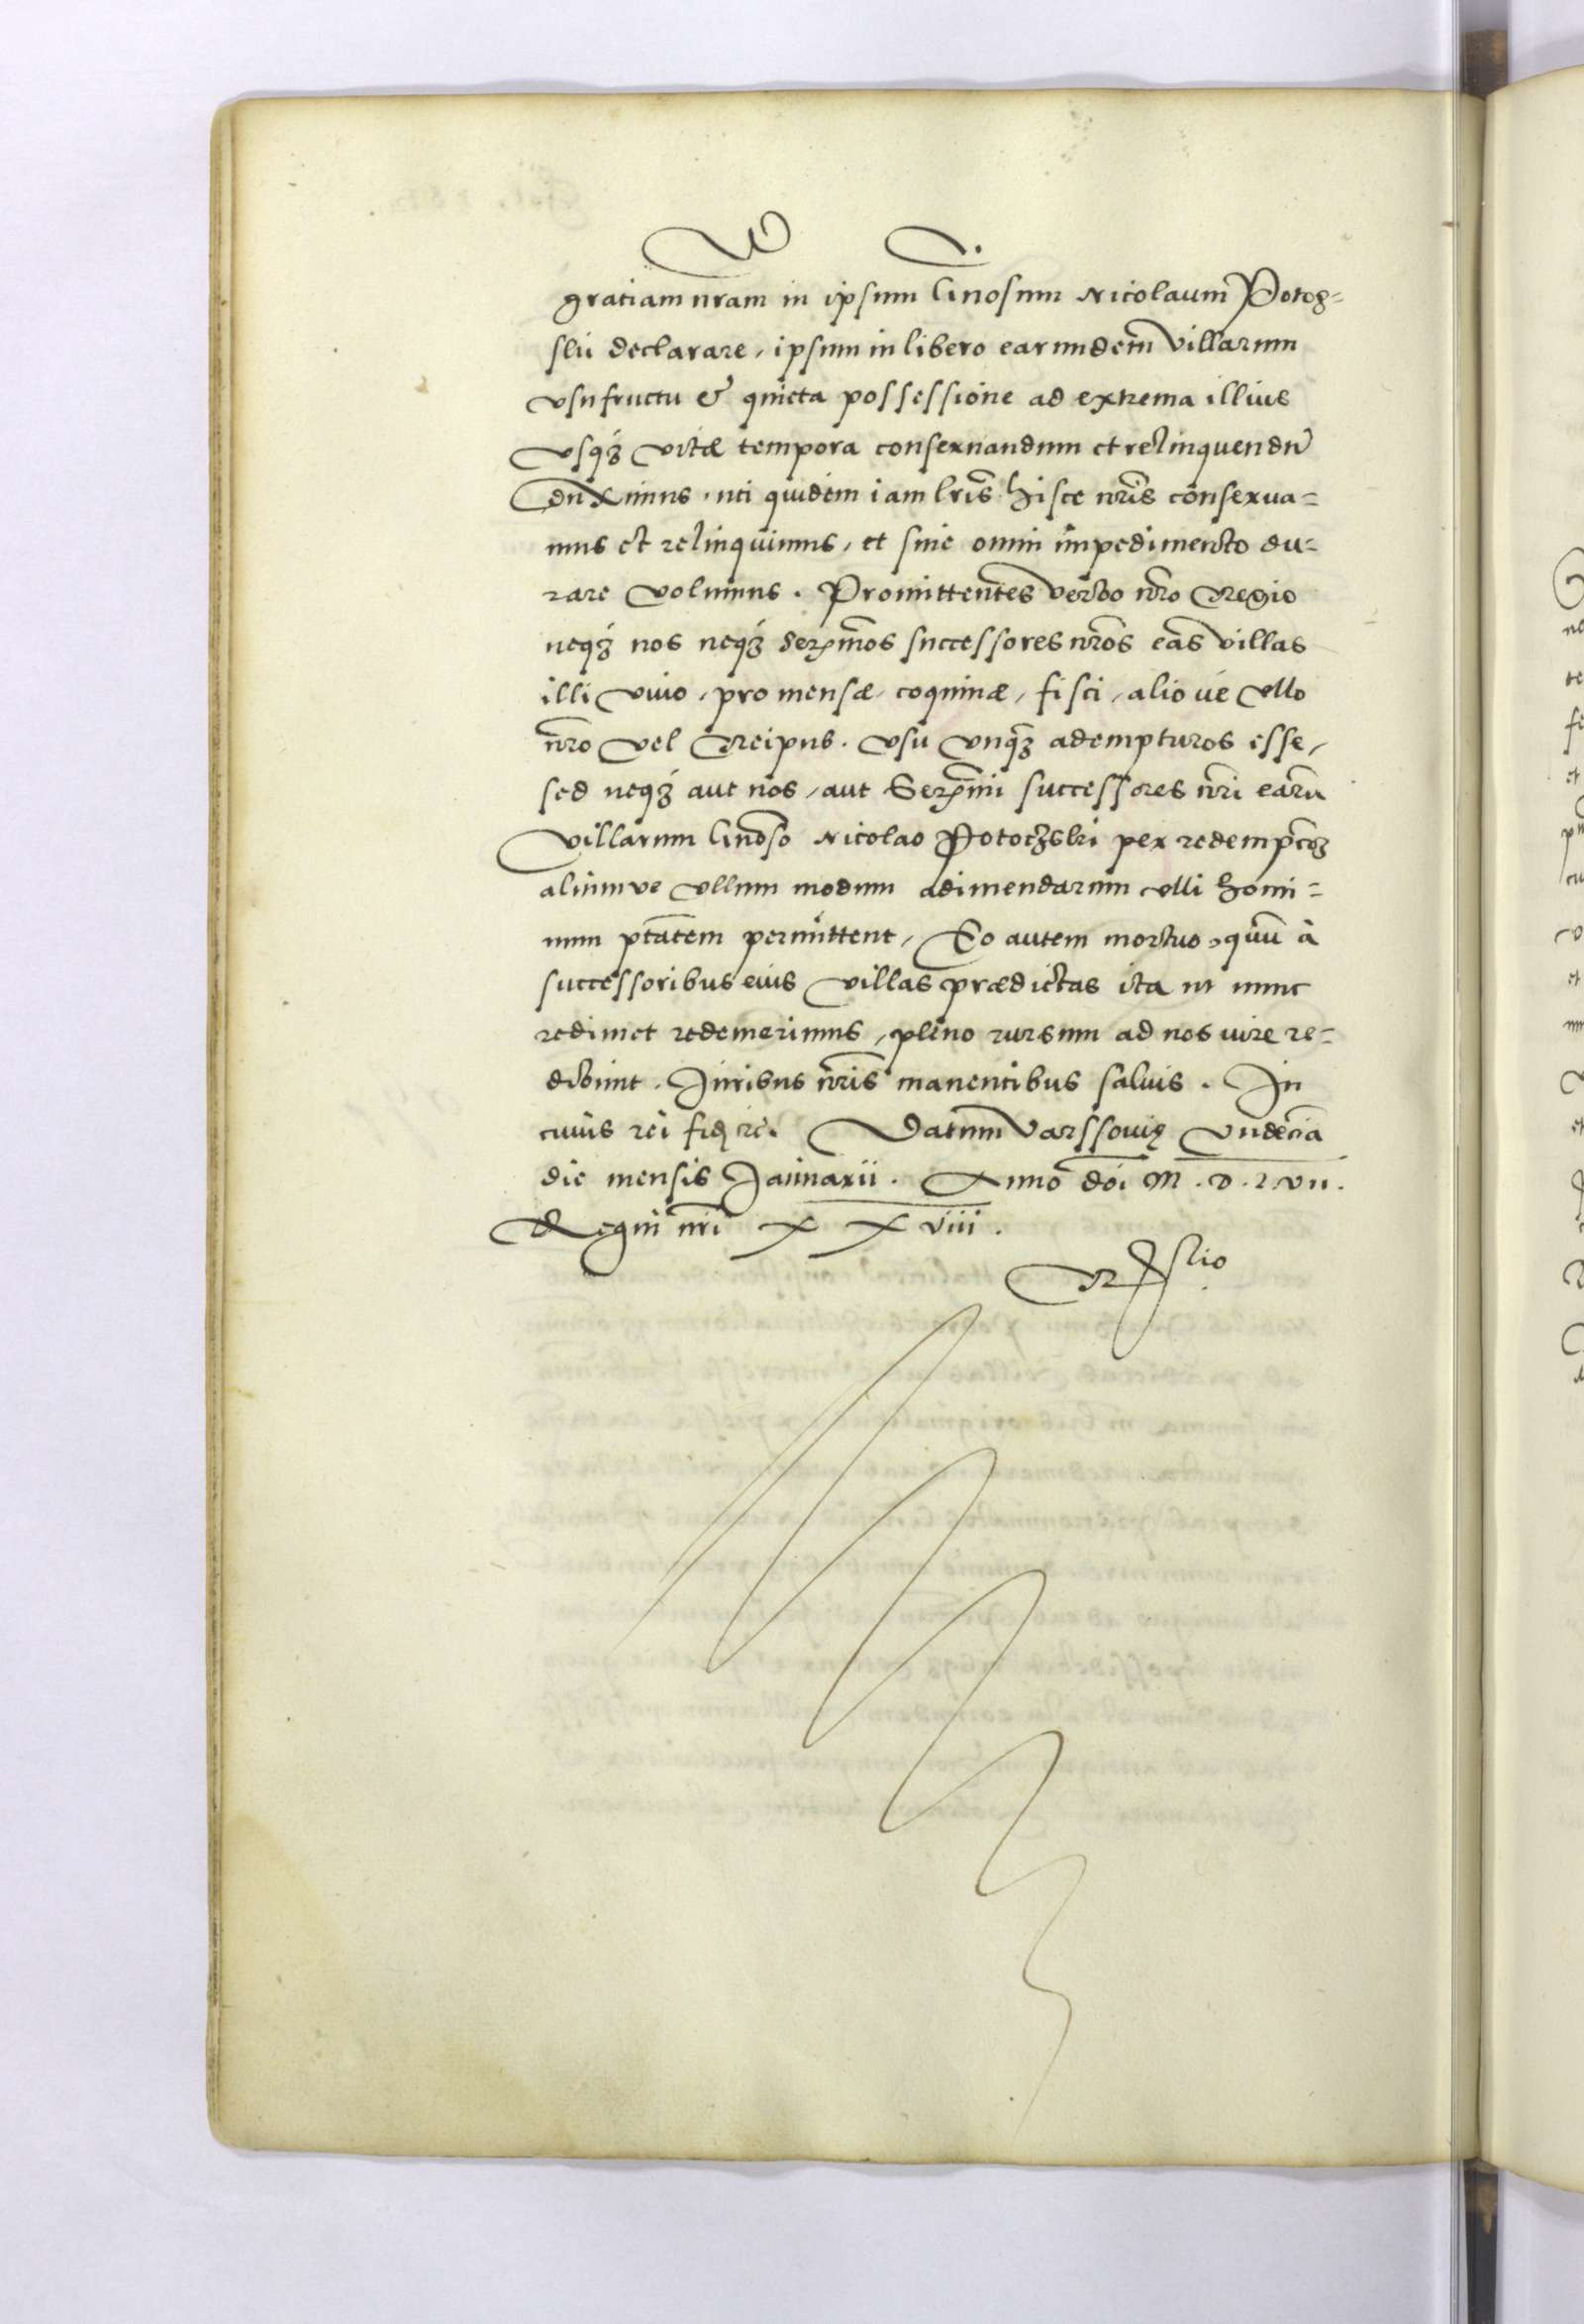 gratiam nr̃am in ipsum Gnosum Nicolaum Potog=
skii declarare, ipsum in libero earundem villarum
vsufructu & quieta possessione ad extrema illius
vsq́ꝫ vitæ tempora conseruandum et relinquendũ
duximus. uti quidem iam lr̃is hisce nr̃is conserua=
mus et relinquimus, et sine omni impedimento du=
rare volumus. Promittentes verbo nr̃o Regio
neq́ꝫ nos neq́ꝫ Serᷤmos successores nr̃os eas villas
illi viuo, pro mensæ, coquinæ, fisci, alio ue vllo
nr̃o vel Reipub. vsu vnq̃ꝫ adempturos esse,
sed neq́ꝫ aut nos, aut Serᷤmi successores nr̃i earũ
villarum Gnoso Nicolao Potoczski per redemp̃coꝫ
aliumve vllum modum adimendarum vlli homi=
num p̃tatem permittent, Eo autem mortuo, quũ à
successoribus eius villas prædictas ita ut nunc
redimet redemerimus, pleno rursum ad nos iure re=
dibunt. Iuribus nr̃is manentibus saluis. In
cuius rei fidẽ rc. Datum Varssouię vndecĩa
die mensis Januarii. Anno dõi M.D.L.VII.
Regni nr̃i XXviii.